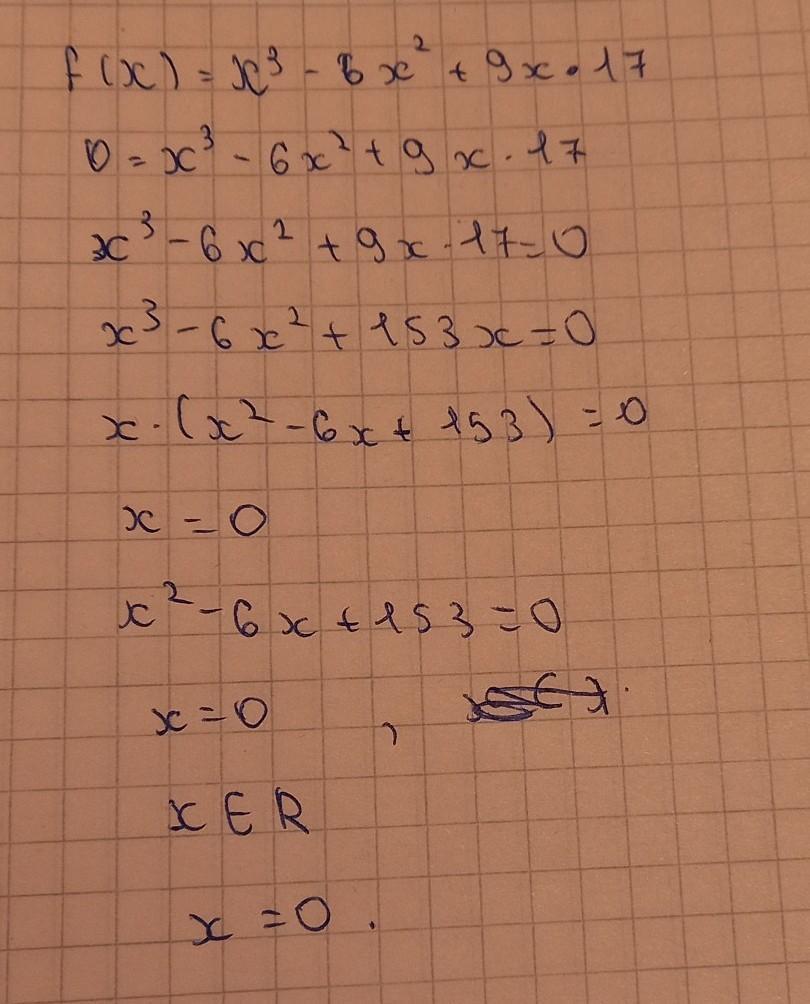 f(x) = x³ - 6x² + 9x · 17
0 = x³ - 6x² + 9x · 17
x³ - 6x² + 9x · 17 = 0
x³ - 6x² + 153x = 0
x · (x² - 6x + 153) = 0
x = 0
x² - 6x + 153 = 0
x = 0 ,
x ∈ R
x = 0 .